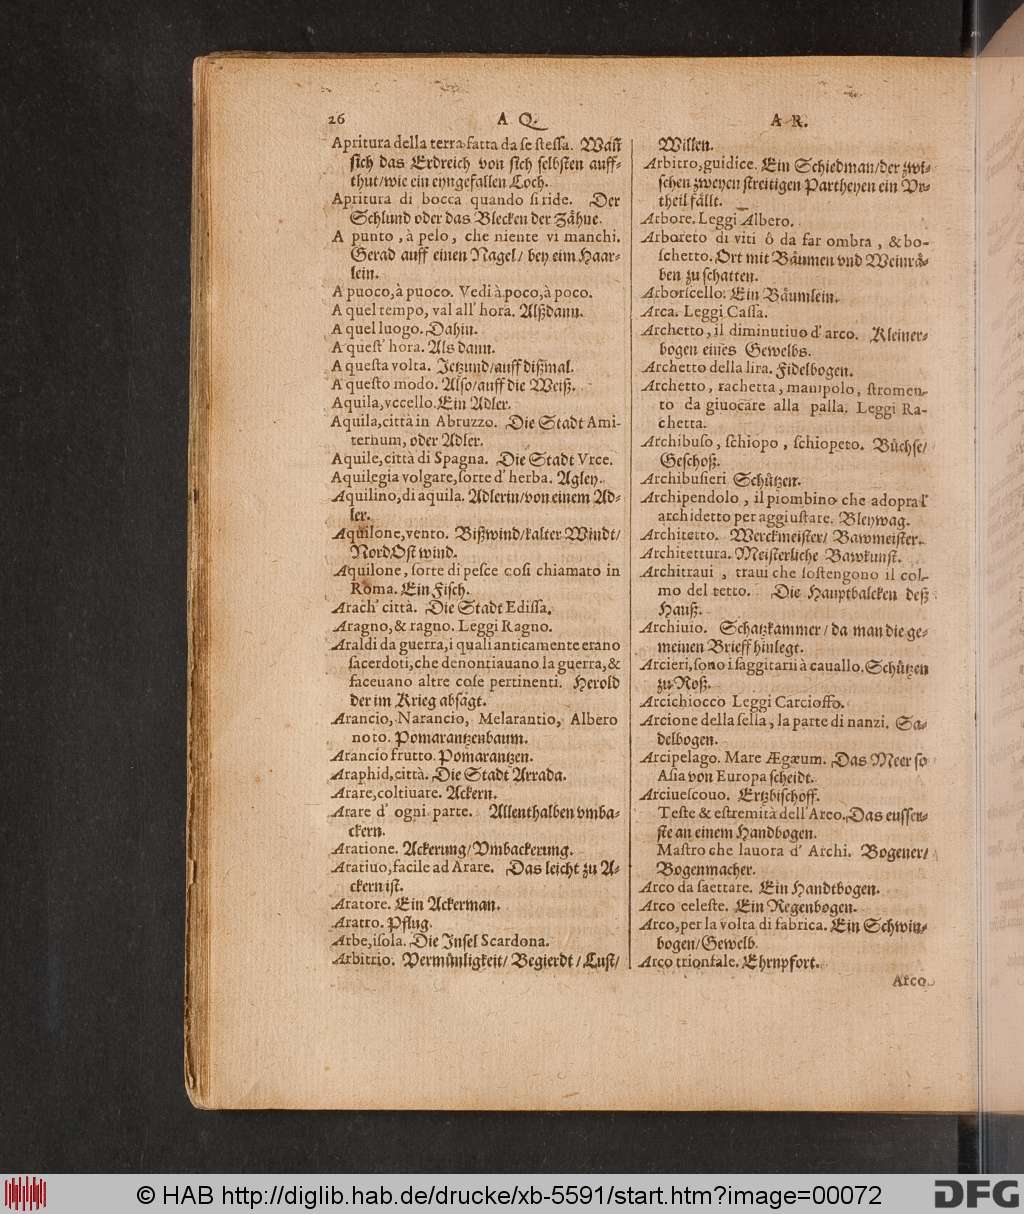 26
A Q.
Apritura della terra fatta da se stessa. Wañ
sich das Erdreich von sich selbsten auff-
thut/wie ein eyngefallen Loch.
Apritura di bocca quando si ride. Der
Schlund oder das Blecken der Zåhne.
A punto, à pelo, che niente vi manchi.
Gerad auff einen Nagel/ bey eim Haar-
lein.
A puoco,à puoco. Vedi à poco,à poco.
A quel tempo, val all' hora. Alßdann.
A quel luogo. Dahin.
A quest' hora. Als dann.
A questa volta. Jetzund/auff dißmal.
A questo modo. Also/auff die Weiß.
Aquila,vccello. Ein Adler.
Aquila,città in Abruzzo. Die Stadt Ami-
ternum, oder Adler.
Aquile,città di Spagna. Die Stadt Vrce.
Aquilegia volgare,sorte d' herba. Agley.
Aquilino,di aquila. Adlerin/von einem Ad-
ler.
Aquilone,vento. Bißwind/kalter Windt/
NordOst wind.
Aquilone, sorte di pesce cosi chiamato in
Roma. Ein Fisch.
Arach' città. Die Stadt Edissa.
Aragno,& ragno. Leggi Ragno.
Araldi da guerra,i quali anticamente erano
sacerdoti,che denontiauano la guerra,&
faceuano altre cose pertinenti. Herold
der im Krieg absagt.
Arancio, Narancio, Melarantio, Albero
noto. Pomarantzenbaum.
Arancio frutto. Pomarantzen.
Araphid,città. Die Stadt Arrada.
Arare,coltiuare. Ackern.
Arare d' ogni parte. Allenthalben vmba-
ckern.
Aratione. Ackerung/Vmbackerung.
Aratiuo,facile ad Arare. Das leicht zu A-
ckern ist.
Aratore. Ein Ackerman.
Aratro. Pflug.
Arbe,isola. Die Insel Scardona.
Arbitrio. Vermůnligkeit/ Begierdt/ Lust/
A R.
Willen.
Arbitro,guidice. Ein Schiedman/der zwi-
schen zweyen streitigen Partheyen ein Vr-
theil fållt.
Arbore. Leggi Albero.
Arboreto di viti ô da far ombra, & bo-
schetto. Ort mit Båumen vnd Weinrå-
ben zu schatten.
Arboricello. Ein Båumlein.
Arca. Leggi Cassa.
Archetto, il diminutiuo d' arco. Kleiner-
bogen eines Gewelbs.
Archetto della lira. Fidelbogen.
Archetto, rachetta, manipolo, stromen-
to da giuocare alla palla. Leggi Ra-
chetta.
Archibuso, schiopo, schiopeto. Bůchse/
Geschoß.
Archibusieri Schůtzen.
Archipendolo, il piombino che adopra l'
archidetto per aggiustare. Bleywag.
Architetto. Werckmeister/ Bawmeister.
Architettura. Meisterliche Bawkunst.
Architraui, traui che sostengono il col-
mo del tetto. Die Hauptbalcken deß
Hauß.
Archiuio. Schatzkammer/ da man die ge-
meinen Brieff hinlegt.
Arcieri,sono i saggitarii à cauallo. Schůtzen
zu Roß.
Arcichiocco Leggi Carcioffo.
Arcione della sella, la parte di nanzi. Sa-
delbogen.
Arcipelago. Mare Ægæum. Das Meer so
Asia von Europa scheidt.
Arciuescouo. Ertzbischoff.
Teste & estremità dell' Arco. Das eusser-
ste an einem Handbogen.
Mastro che lauora d' Archi. Bogener/
Bogenmacher.
Arco da saettare. Ein Handtbogen.
Arco celeste. Ein Regenbogen.
Arco,per la volta di fabrica. Ein Schwin-
bogen/Gewelb.
Arco trionfale. Ehrnpfort.
Arco.
© HAB http://diglib.hab.de/drucke/xb-5591/start.htm?image=00072
DFG